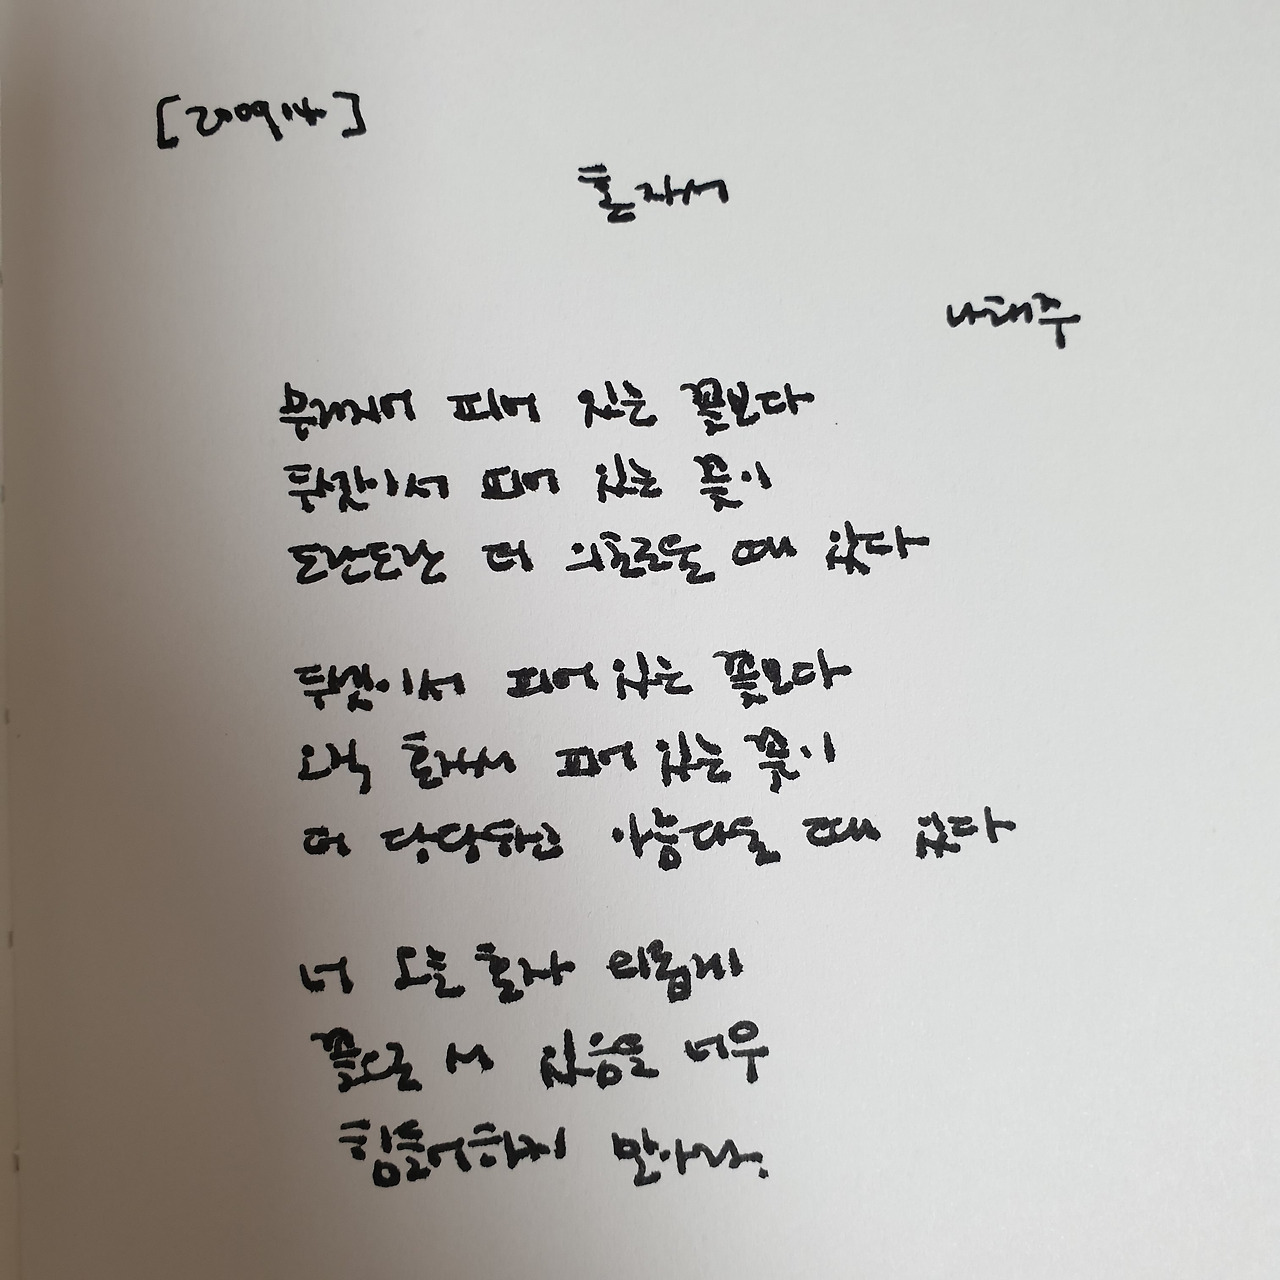 [200914]
혼자서
나태주
무리지어 피어 있는 꽃보다
두셋이서 피어 있는 꽃이
도란도란 더 의초로울 때 있다
두셋이서 피어 있는 꽃보다
오직 혼자서 피어 있는 꽃이
더 당당하고 아름다울 때 있다
너 오늘 혼자 외롭게
꽃으로 서 있음을 너무
힘들어하지 말아라.